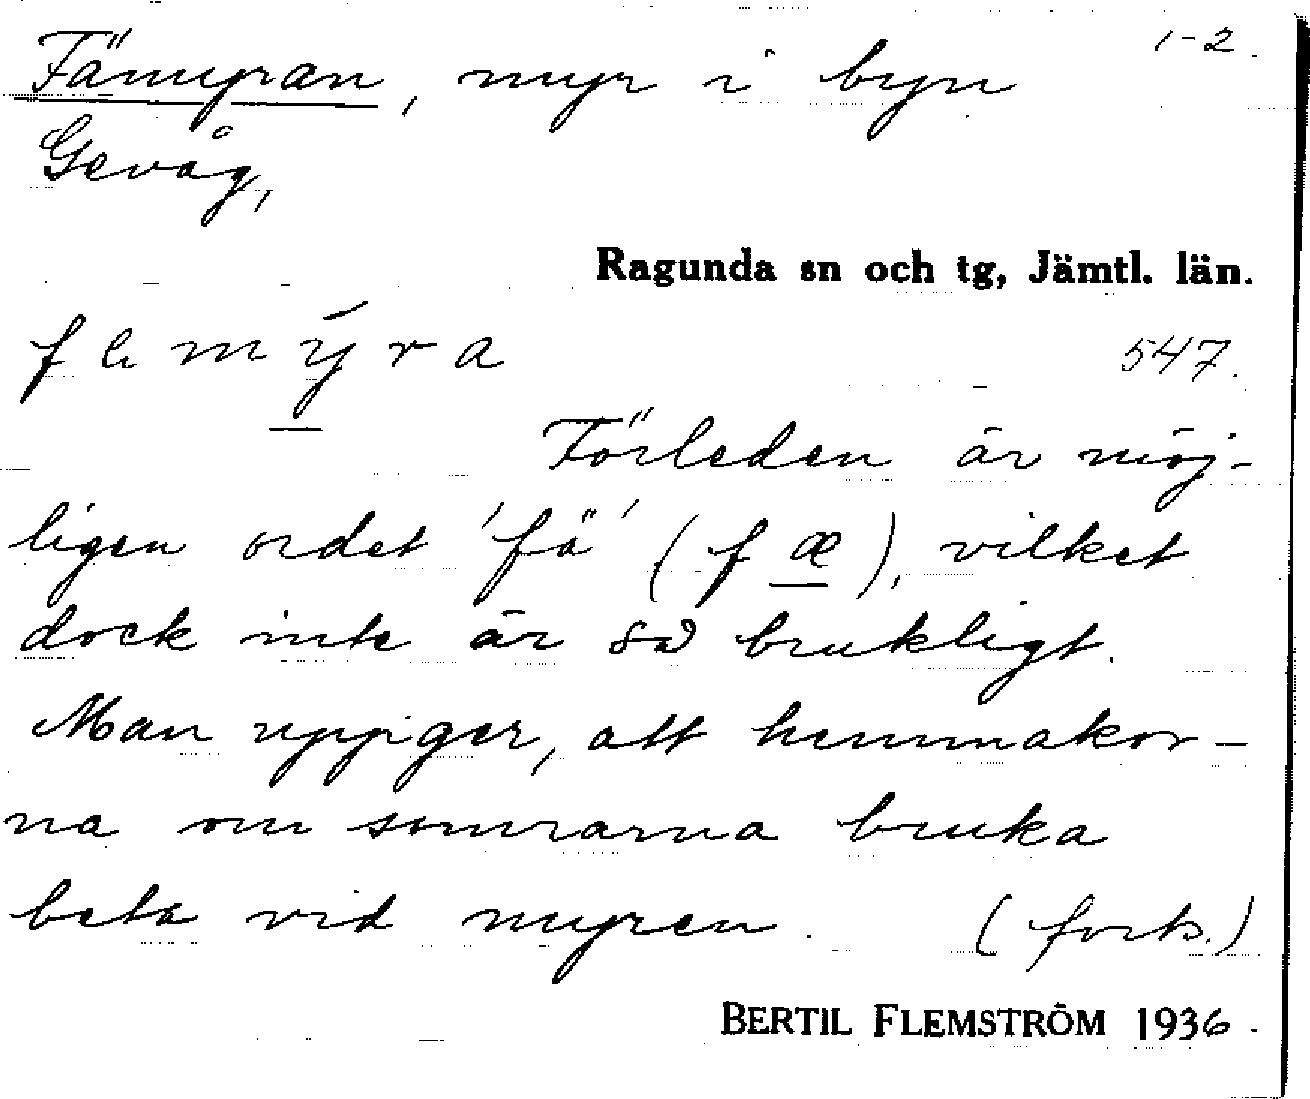 Fämyran, myr i byn
1-2.
Gevåg,
Ragunda sn och tg, Jämtl. län.
547.
Förleden är möj-
ligen ordet 'fä' (f æ), vilket
dock inte är så brukligt.
Man uppger, att hemmakor-
na om somrarna bruka
beta vid myren. (forts.)
BERTIL FLEMSTRÖM 1936.